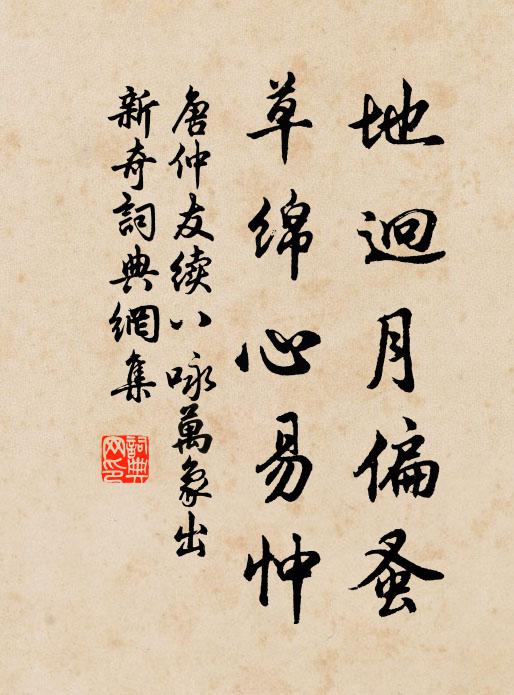 地迥月偏蚤
草綿心易忡
唐仲友續八咏萬象出
新奇詞典網集
詞典網印